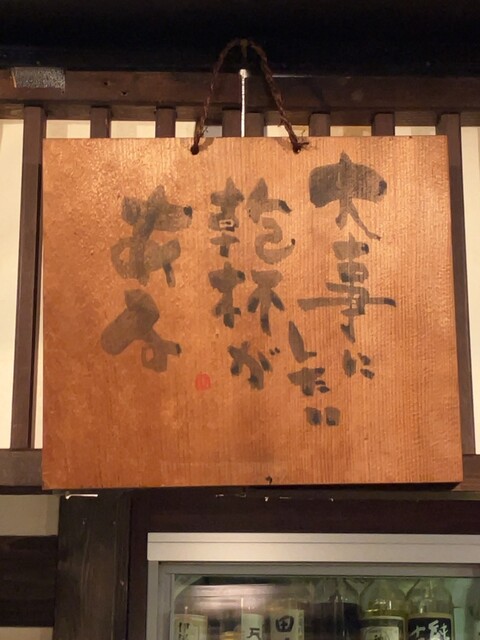 大事に
したい
乾杯が
ある
田
純